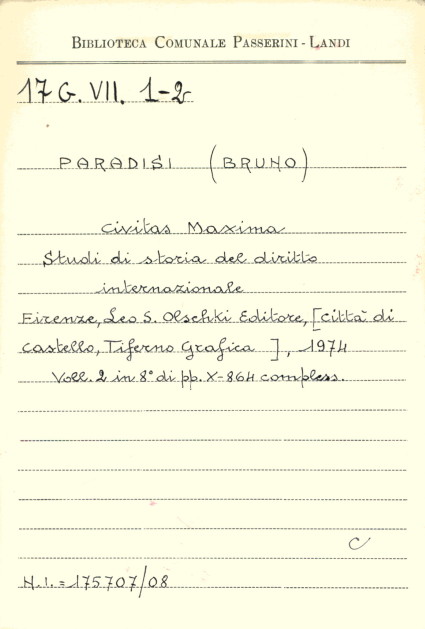 BIBLIOTECA COMUNALE PASSERINI - LANDI
17 G. VII. 1-2
PARADISI (BRUNO)
Civitas Maxima
Studi di storia del diritto
internazionale
Firenze, Leo S. Olschki Editore, [Città di
Castello, Tiferno Grafica ], 1974
Voll. 2 in 8° di pp. X-864 compless.
C
N.I. = 175707/08